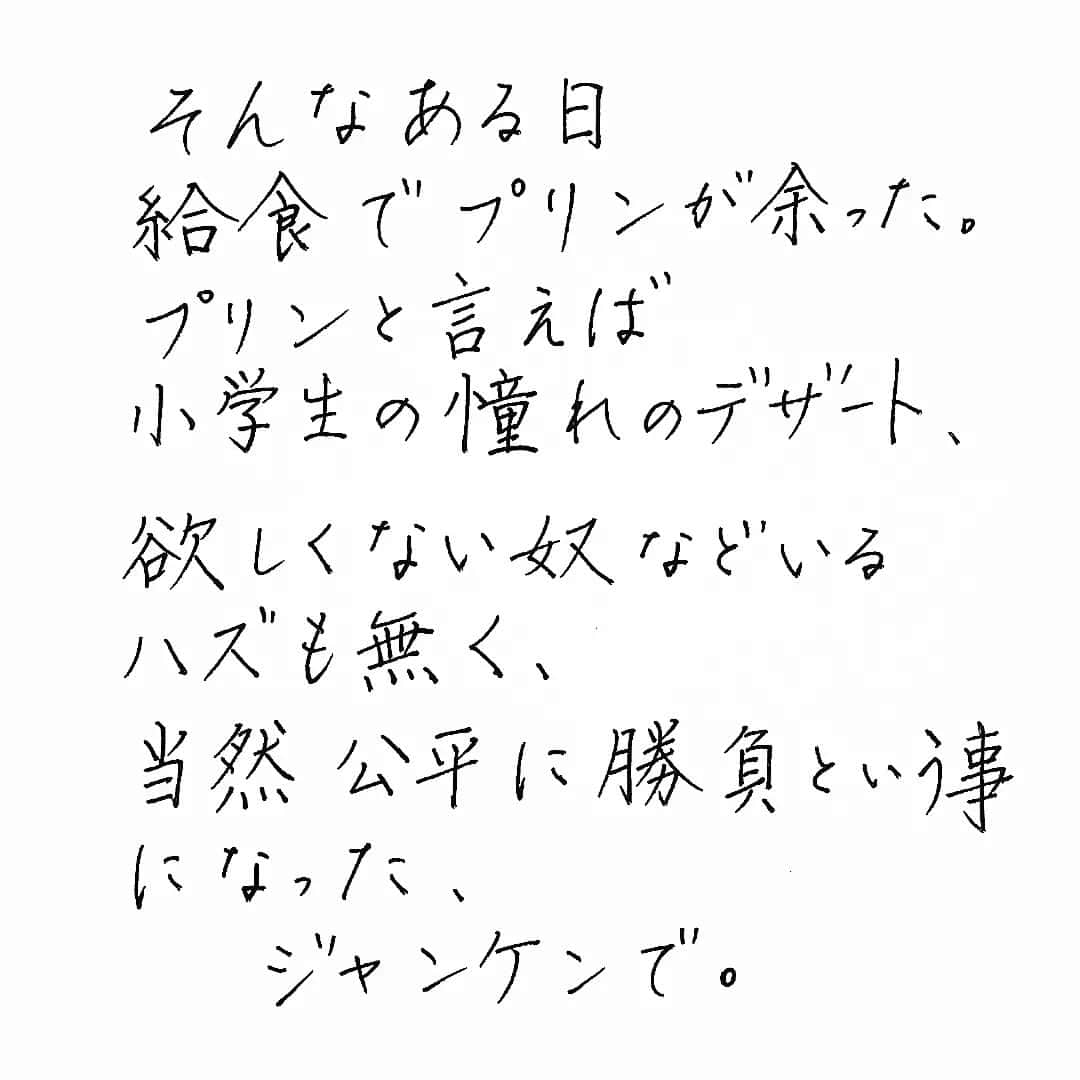 そんなある日
給食でプリンが余った。
プリンと言えば
小学生の憧れのデザート、
欲しくない奴などいる
ハズも無く、
当然公平に勝負という事
になった、
ジャンケンで。